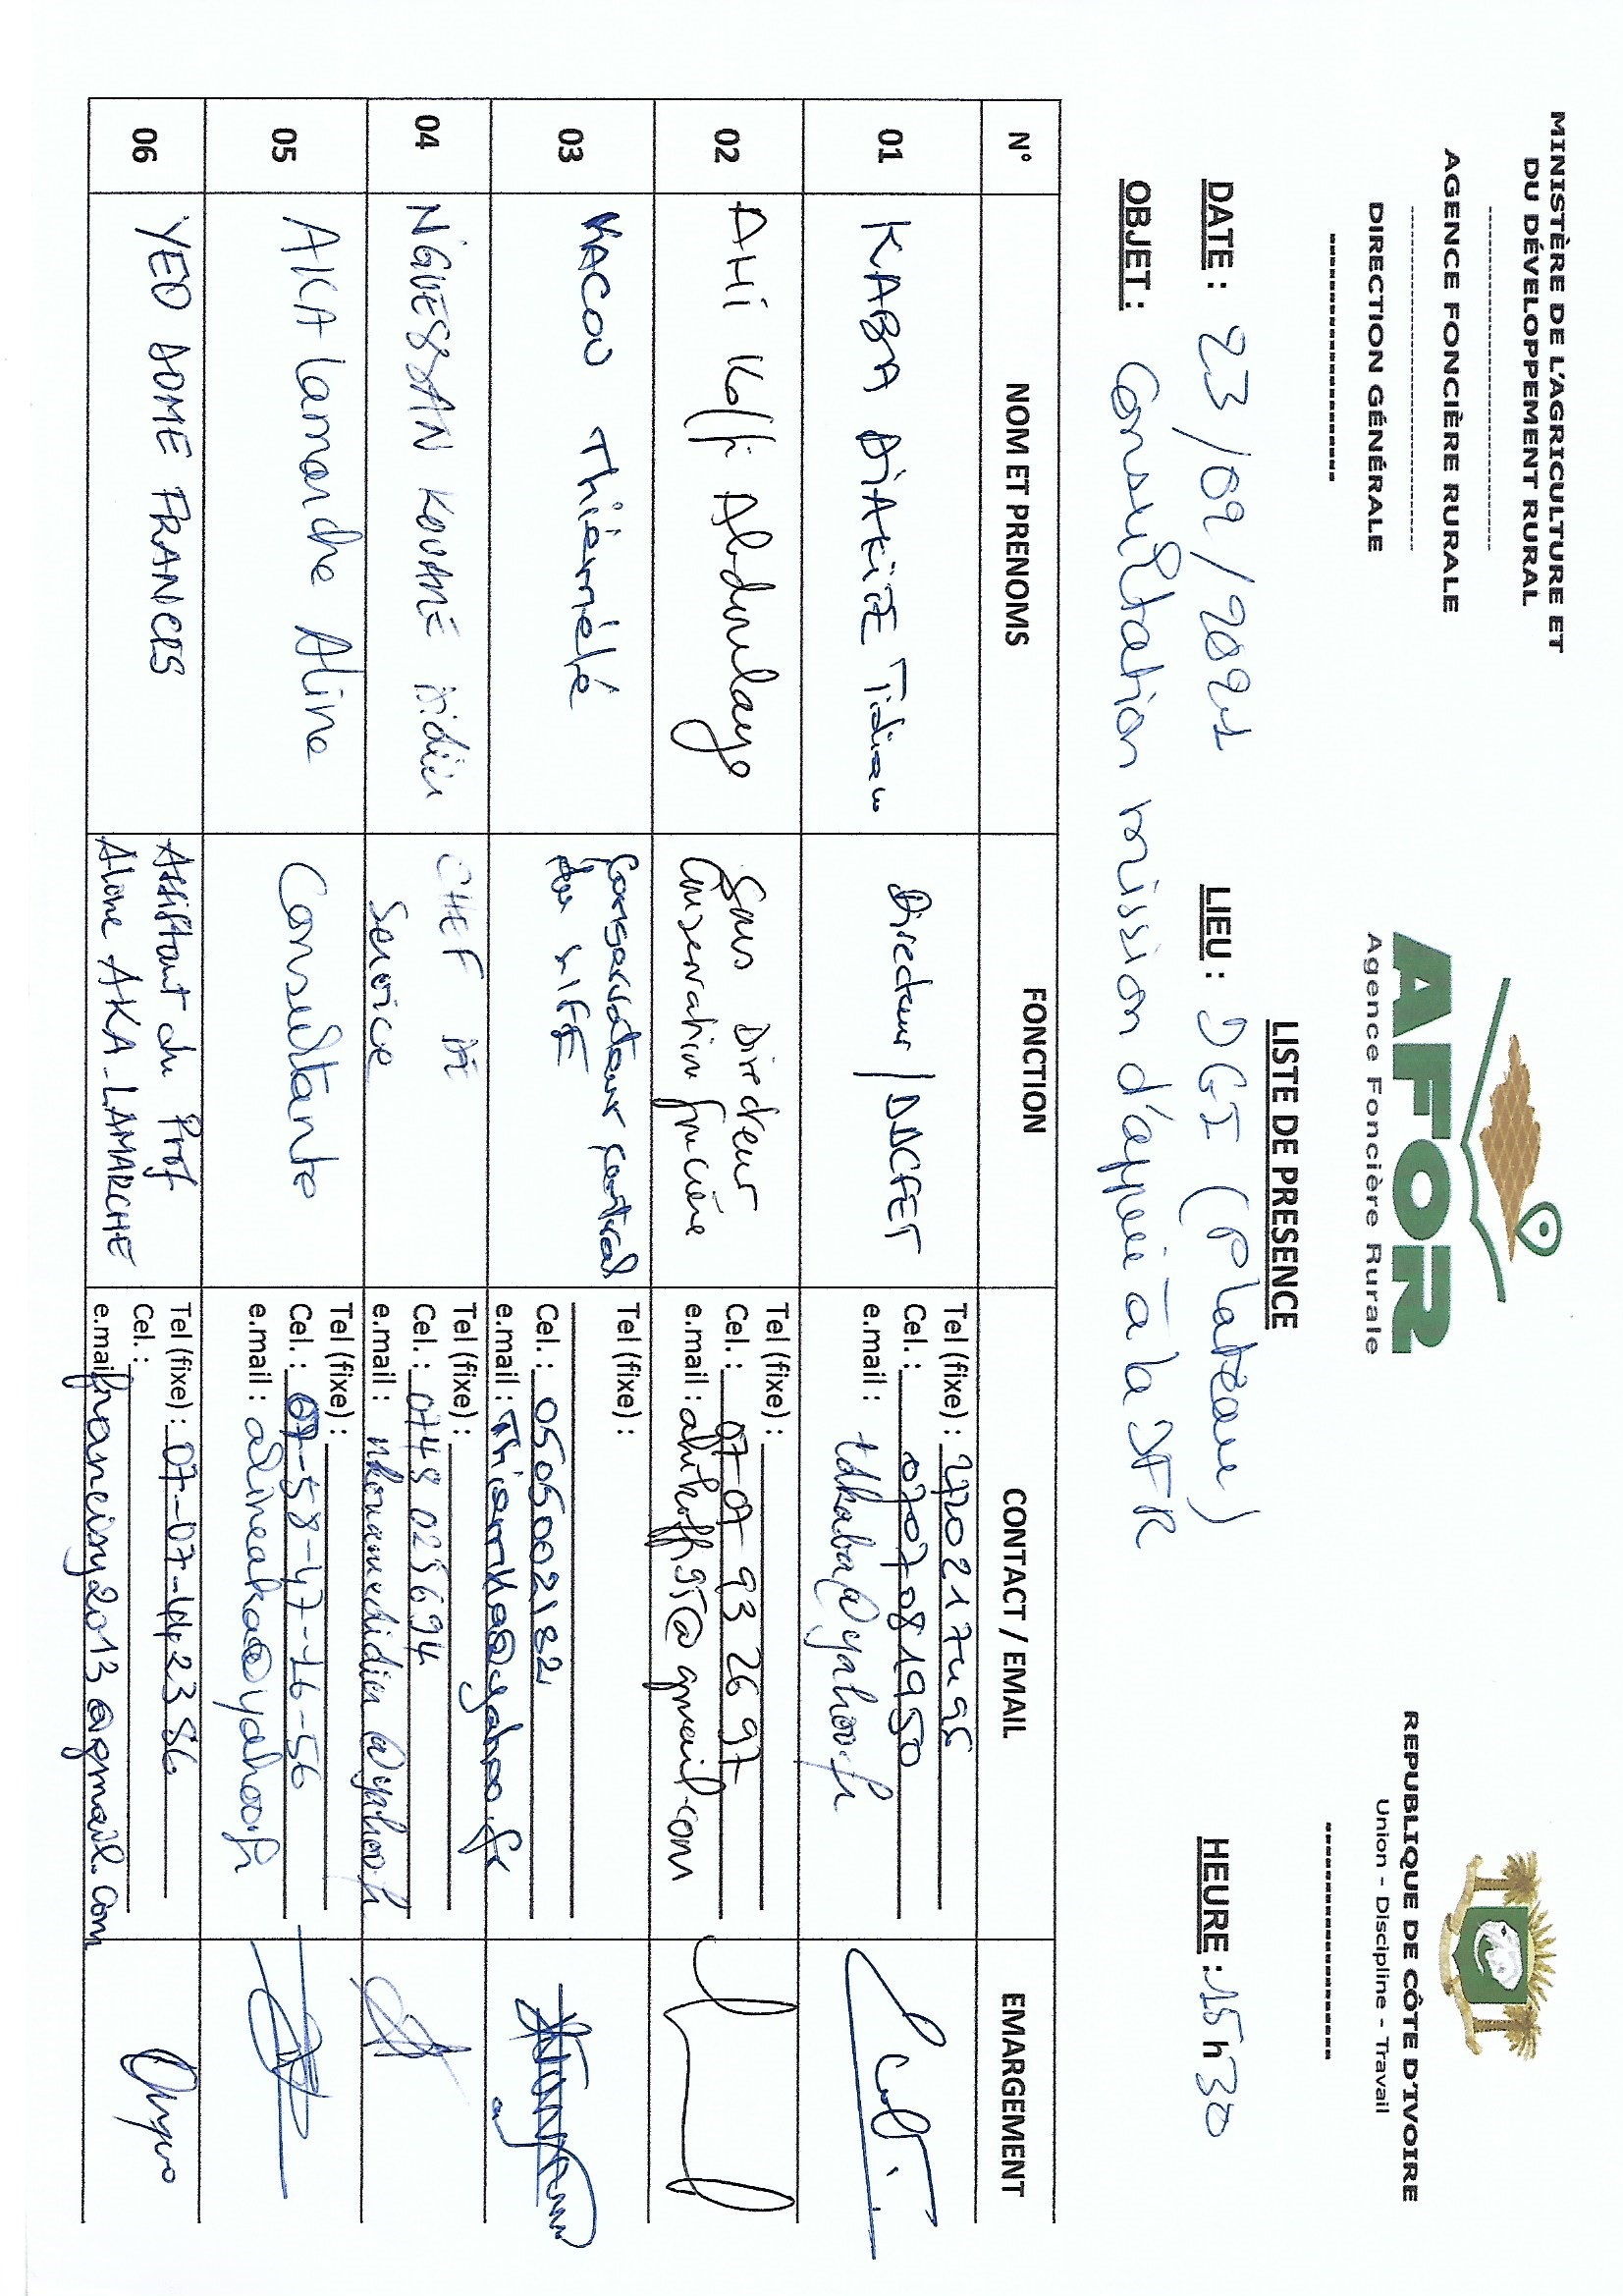 MINISTÈRE DE L'AGRICULTURE ET
DU DÉVELOPPEMENT RURAL
AGENCE FONCIÈRE RURALE
DIRECTION GÉNÉRALE
AFOR
Agence Foncière Rurale
REPUBLIQUE DE CÔTE D'IVOIRE
Union – Discipline – Travail
LISTE DE PRESENCE
DATE : 23/09/2021 LIEU : DGI (Plateau) HEURE : 15 h 30
OBJET : Consultation mission d'appui à la DFR
N° NOM ET PRENOMS FONCTION CONTACT / EMAIL EMARGEMENT
01 KABA DIAKITE Tidiane Directeur / DDCFET
Tel (fixe) :
Cel. : 0707081950
e.mail : tdkaba@yahoo.fr
02 AHI Koffi Abdoulaye Sous Directeur
Conservation foncière
Tel (fixe) :
Cel. : 07 07 93 26 97
e.mail : ahikoffi95@gmail.com
03 KACOU Thiémélé Conservateur central
du SIFE
Tel (fixe) :
Cel. : 0505002182
e.mail :
04 N'GUESSAN KOUAMÉ Didier CHEF DE
Service
Tel (fixe) :
Cel. : 0748025694
e.mail : nkouamedidier@yahoo.fr
05 AKA Lamarche Aline Consultante
Tel (fixe) :
Cel. : 07-58-47-16-56
e.mail : alineaka@yahoo.fr
06 YEO DOME FRANCES Assistant du Prof
Aline AKA-LAMARCHE
Tel (fixe) : 07-07-442386
Cel. :
e.mail